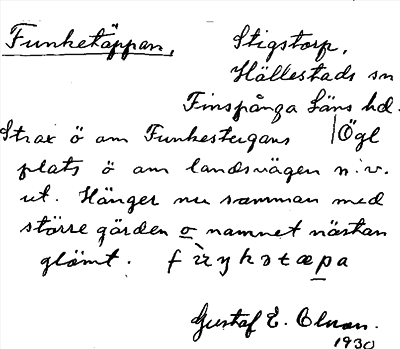 Funketäppan, Stigstorp,
Hällestads sn
Finspånga Läns hd.
Strax ö om Funkestugans Ögl
plats ö om landsvägen n.v.
ut. Hänger nu samman med
större gärden o namnet nästan
glömt.
Gustaf E.
1930